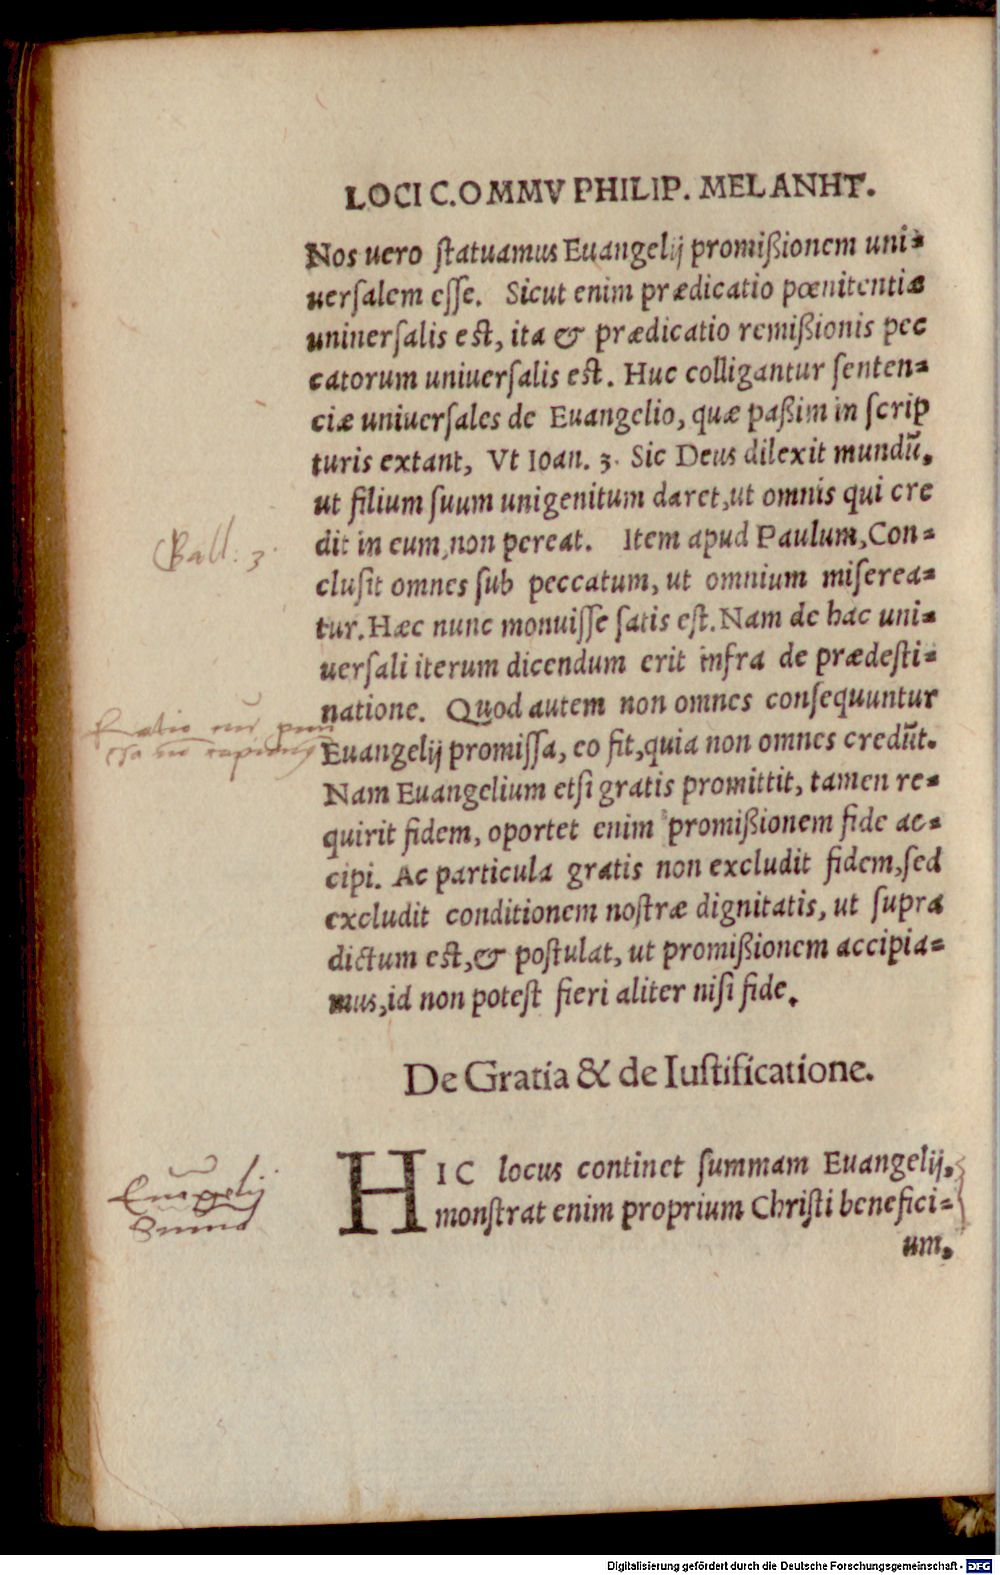 LOCI C.OMMV PHILIP. MELANHT.
Nos uero ſtatuamus Euangelij promißionem uni⸗
uerſalem eſſe. Sicut enim prædicatio pœnitentiæ
uniuerſalis eſt, ita & prædicatio remißionis pec
catorum uniuerſalis eſt. Huc colligantur ſenten⸗
ciæ uniuerſales de Euangelio, quæ paßim in ſcrip
turis extant, Vt Ioan. 3. Sic Deus dilexit mundũ,
ut filium ſuum unigenitum daret, ut omnis qui cre
dit in eum, non pereat. Item apud Paulum, Con⸗
cluſit omnes ſub peccatum, ut omnium miſerea⸗
tur. Hæc nunc monuiſſe ſatis eſt. Nam de hac uni⸗
uerſali iterum dicendum erit infra de prædeſti⸗
natione. Quod autem non omnes conſequuntur
Euangelij promiſſa, eo fit, quia non omnes credũt.
Nam Euangelium etſi gratis promittit, tamen re⸗
quirit fidem, oportet enim promißionem fide ac⸗
cipi. Ac particula gratis non excludit fidem, ſed
excludit conditionem noſtræ dignitatis, ut ſupra
dictum eſt, & poſtulat, ut promißionem accipia⸗
mus, id non poteſt fieri aliter niſi fide.
De Gratia & de Iuſtificatione.
HIC locus continet ſummam Euangelij,
monſtrat enim proprium Chriſti benefici⸗
um,
Euãgelij
Digitalisierung gefördert durch die Deutsche Forschungsgemeinschaft - DFG